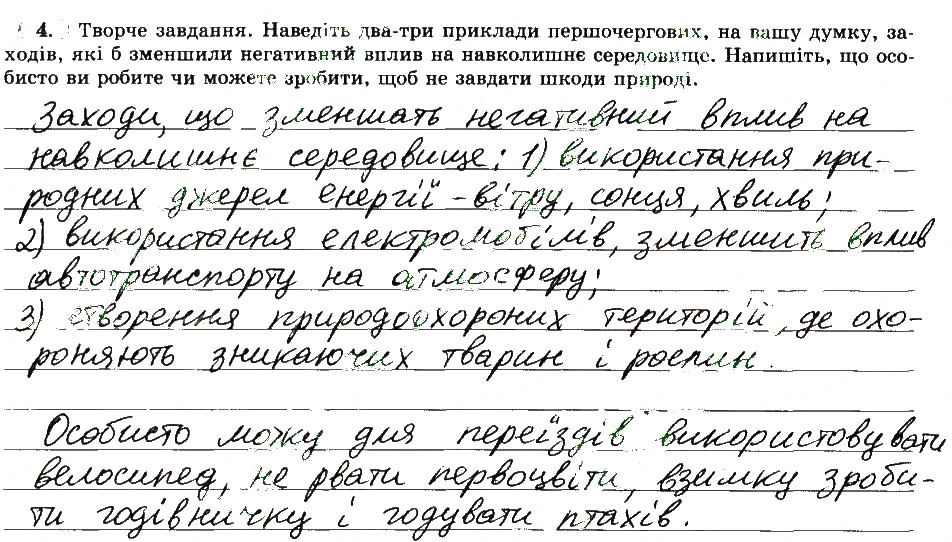 4. Творче завдання. Наведіть два-три приклади першочергових, на вашу думку, за-
ходів, які б зменшили негативний вплив на навколишнє середовище. Напишіть, що осо-
бисто ви робите чи можете зробити, щоб не завдати шкоди природі.
Заходи, що зменшать негативний вплив на
навколишнє середовище: 1) використання при-
родних джерел енергії - вітру, сонця, хвиль;
2) використання електромобілів, зменшить вплив
автотранспорту на атмосферу;
3) створення природоохороних територій, де охо-
роняють зникаючих тварин і рослин.
Особисто можу для переїздів використовувати
велосипед, не рвати первоцвіти, взимку зроби-
ти годівничку і годувати птахів.